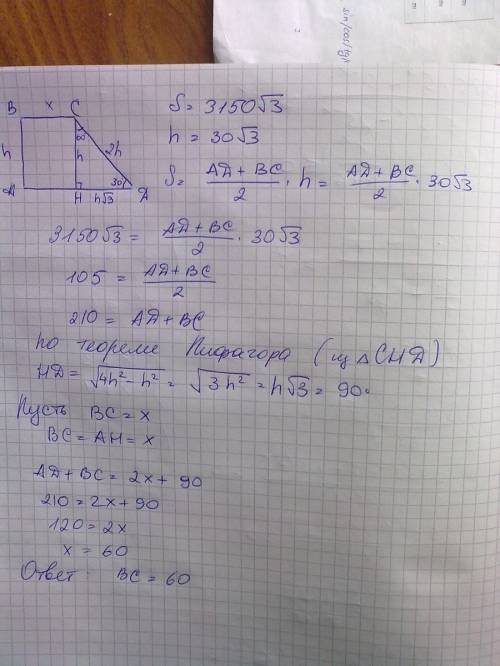 sin/cos/tg/
B x C
h
60
h
2h
30°
A H h√3 D
S = 3150√3
h = 30√3
S = (AD + BC)/2 · h = (AD + BC)/2 · 30√3
3150√3 = (AD + BC)/2 · 30√3
105 = (AD + BC)/2
210 = AD + BC
По теореме Пифагора (из △CHD)
HD = √4h² - h² = √3h² = h√3 = 90
Пусть BC = x
BC = AH = x
AD + BC = 2x + 90
210 = 2x + 90
120 = 2x
x = 60
Ответ: BC = 60